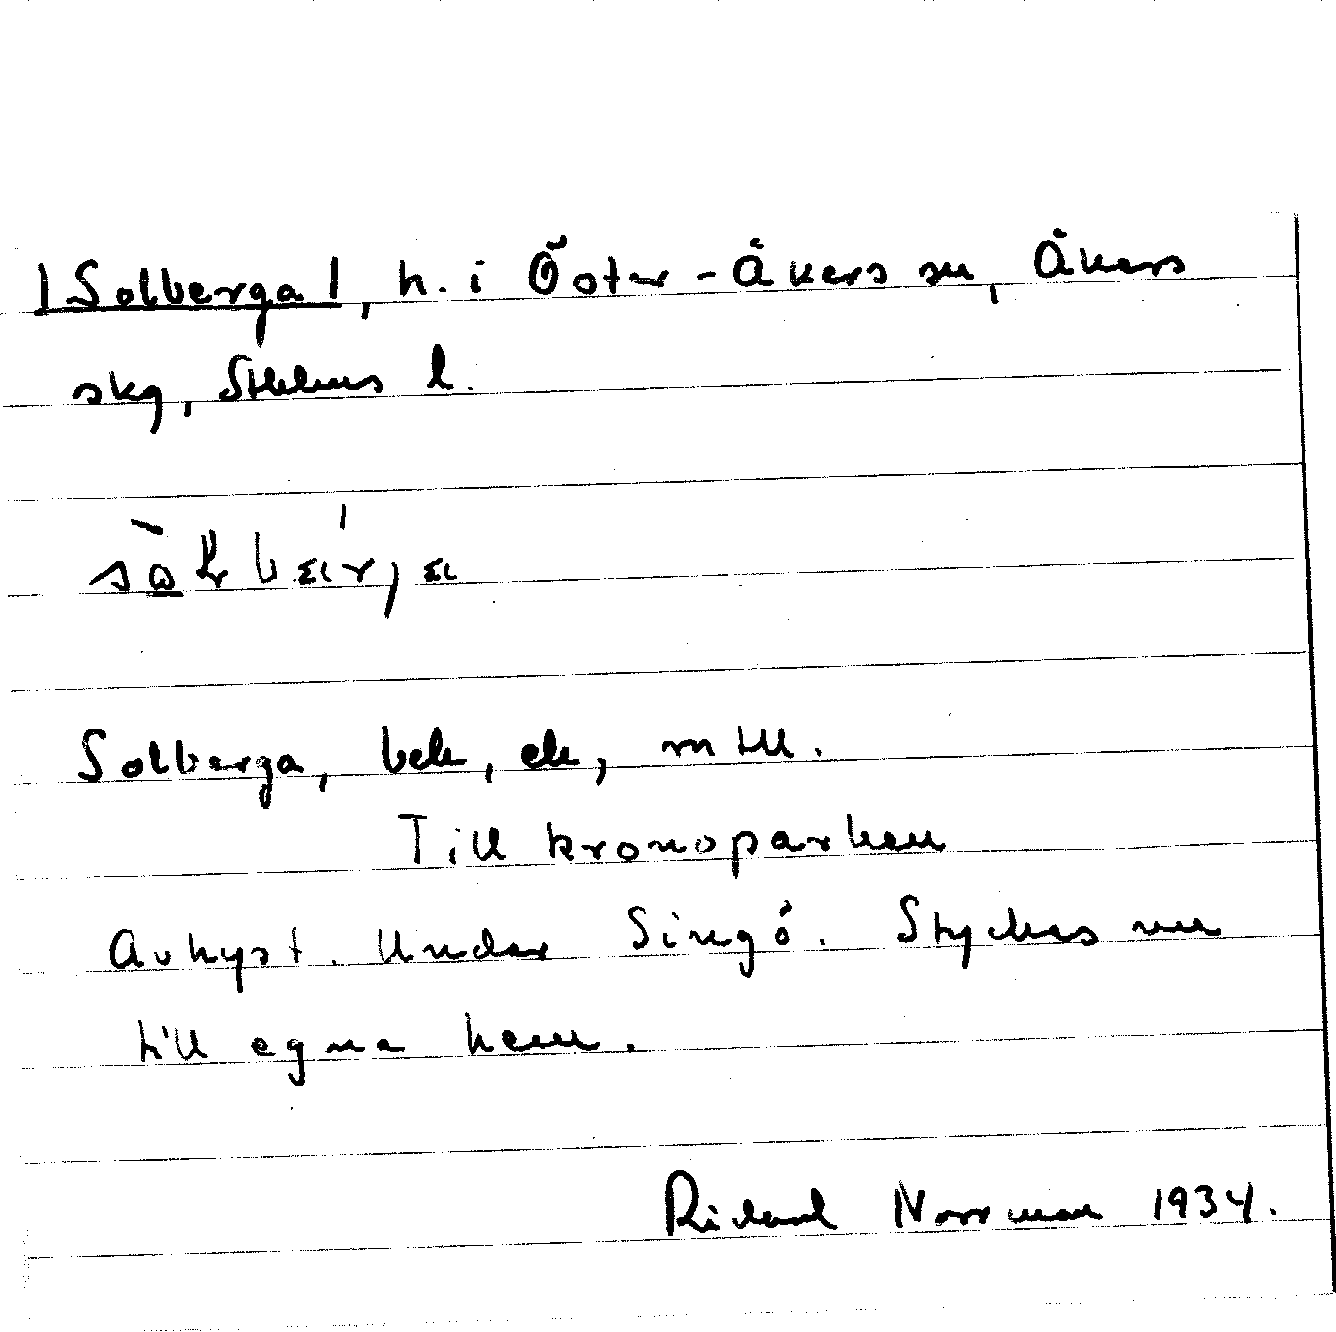 |Solberga|, h. i Öster-Åkers sn, Åkers
skg, Sthlms l.
Solberga, bek, ek, mtl.
Till kronoparken
Avhyst. Under Singö. Styckas nu
till egna hem.
Rickard Norrman 1934.